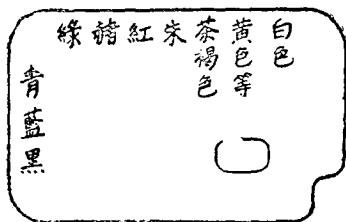 白色
黄色等
茶褐色
朱
紅
赭
緑
青藍黒